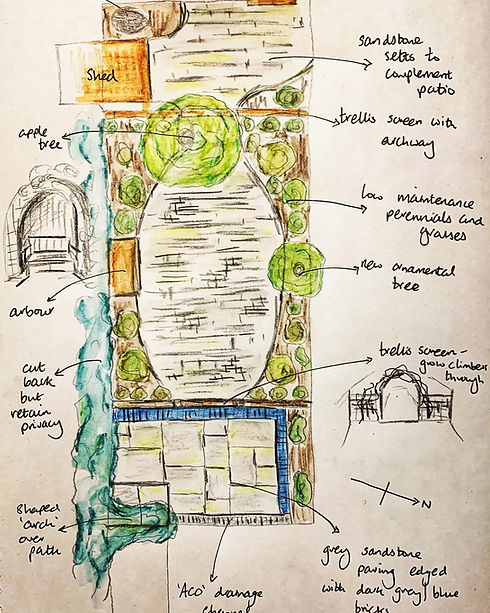 sandstone
setts to
complement
patio
Shed
trellis screen with
archway
apple
tree
low maintenance
perennials and
grasses
new ornamental
tree
arbour
trellis screen -
grow climbers
through
cut
back
but
retain
privacy
N
shaped
'arch'
over
path
grey sandstone
paving edged
with dark grey/blue
bricks
'ACO' drainage
channel